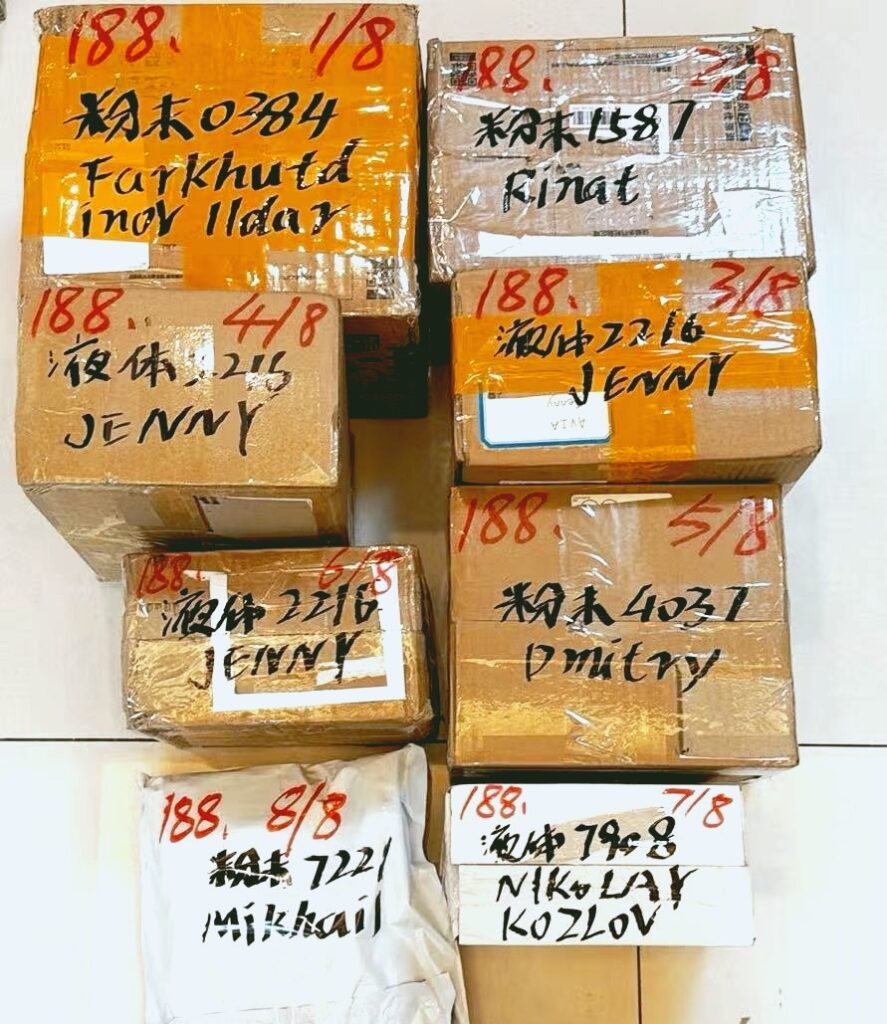 188. 1/8
粉末0384
Farkhutd
inov Ildar
188. 2/8
粉末1587
Rinat
188. 4/8
液体2216
JENNY
188. 3/8
液体2216
JENNY
AVIA
Jenny
188. 6/8
液体2216
JENNY
188. 5/8
粉末4037
Dmitry
188. 8/8
粉末7221
Mikhail
188. 7/8
液体7908
NIKOLAY
KOZLOV